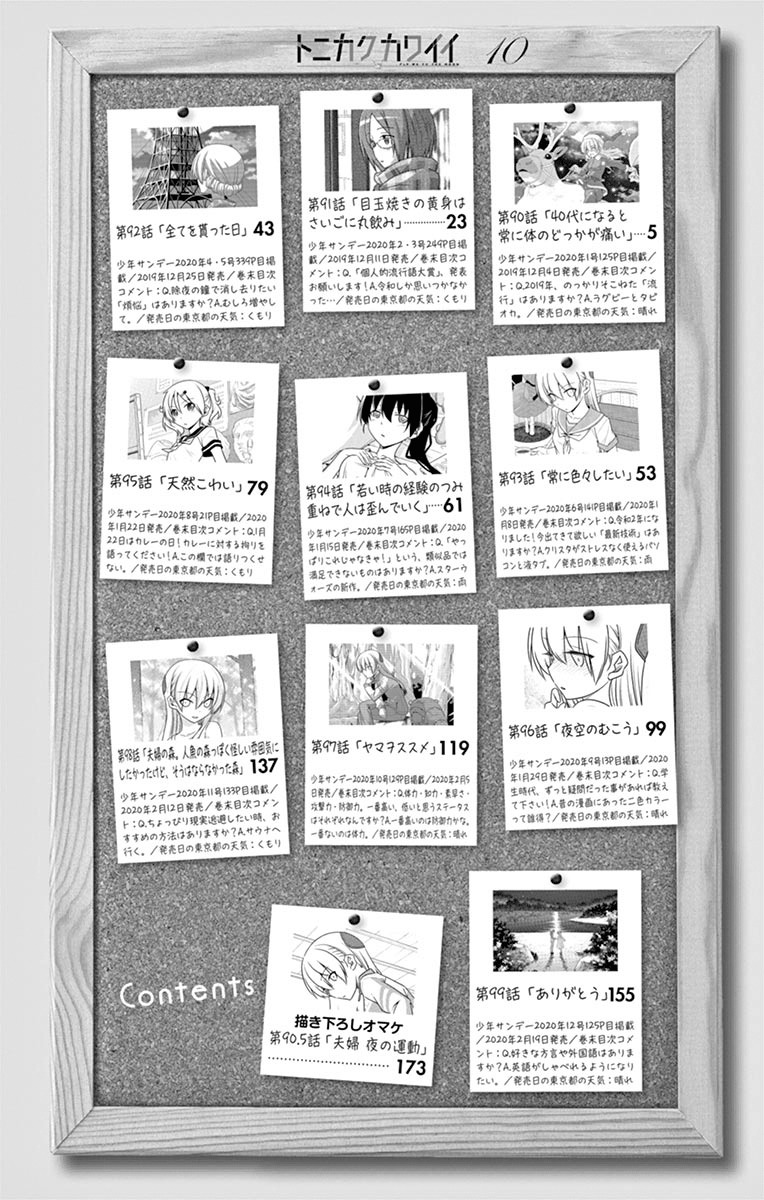 トニカクカワイイ 10
FLY ME TO THE MOON
第90話「40代になると
常に体のどっかが痛い」…5
少年サンデー2020年1号125P目掲
載/2019年12月4日発売/巻末目次
コメント:Q.2019年、のっかりそこねた「流
行」はありますか?A.ラグビーとタピ
オカ。/発売日の東京都の天気:晴れ
第91話「目玉焼きの黄身は
さいごに丸飲み」…………23
少年サンデー2020年2・3号249P目掲
載/2019年12月11日発売/巻末目次コ
メント:Q.「個人的流行語大賞」、発表
お願いします!A.令和しか思いつかなか
った…/発売日の東京都の天気:くもり
第92話「全てを貰った日」43
少年サンデー2020年4・5号339P目掲
載/2019年12月25日発売/巻末目次
コメント:Q.除夜の鐘で消し去りたい
「煩悩」はありますか?A.むしろ増やし
て。/発売日の東京都の天気:くもり
第93話「常に色々したい」53
少年サンデー2020年6号141P目掲載/2020年1
月8日発売/巻末目次コメント:Q.令和2年にな
りました!今出てきて欲しい「最新技術」はあ
りますか?A.クリスタがストレスなく使えるパソ
コンと液タブ。/発売日の東京都の天気:雨
第94話「若い時の経験のつみ
重ねで人は歪んでいく」……61
少年サンデー2020年7号165P目掲載/2020
年1月15日発売/巻末目次コメント:Q.「やっ
ぱりこれじゃなきゃ!」という、類似品では
満足できないものはありますか?A.スターウ
ォーズの新作。/発売日の東京都の天気:雨
第95話「天然こわい」79
少年サンデー2020年8号21P目掲載/2020
年1月22日発売/巻末目次コメント:Q.1月
22日はカレーの日!カレーに対する拘りを
語ってください!A.この欄では語りつくせ
ない。/発売日の東京都の天気:くもり
第96話「夜空のむこう」99
少年サンデー2020年9号13P目掲載/2020
年1月29日発売/巻末目次コメント:Q.学
生時代、ずっと疑問だった事があれば教え
て下さい!A.昔の漫画にあった二色カラー
って誰得?/発売日の東京都の天気:晴れ
第97話「ヤマヲススメ」119
少年サンデー2020年10号129P目掲載/2020年2月5
日発売/巻末目次コメント:Q.体力・知力・素早さ・
攻撃力・防御力。一番高い、低いと思うステータス
はそれぞれなんですか?A.一番高いのは防御力かな。
一番ないのは体力。/発売日の東京都の天気:晴れ
第98話「夫婦の森。人魚の森っぽく怪しい雰囲気に
したかったけど、そうはならなかった森」137
少年サンデー2020年11号133P目掲載/
2020年2月12日発売/巻末目次コメン
ト:Q.ちょっぴり現実逃避したい時、お
すすめの方法はありますか?A.サウナへ
行く。/発売日の東京都の天気:くもり
第99話「ありがとう」155
少年サンデー2020年12号125P目掲載
/2020年2月19日発売/巻末目次コメ
ント:Q.好きな方言や外国語はありま
すか?A.英語がしゃべれるようになり
たい。/発売日の東京都の天気:晴れ
描き下ろしオマケ
第90.5話「夫婦 夜の運動」
……………………173
Contents